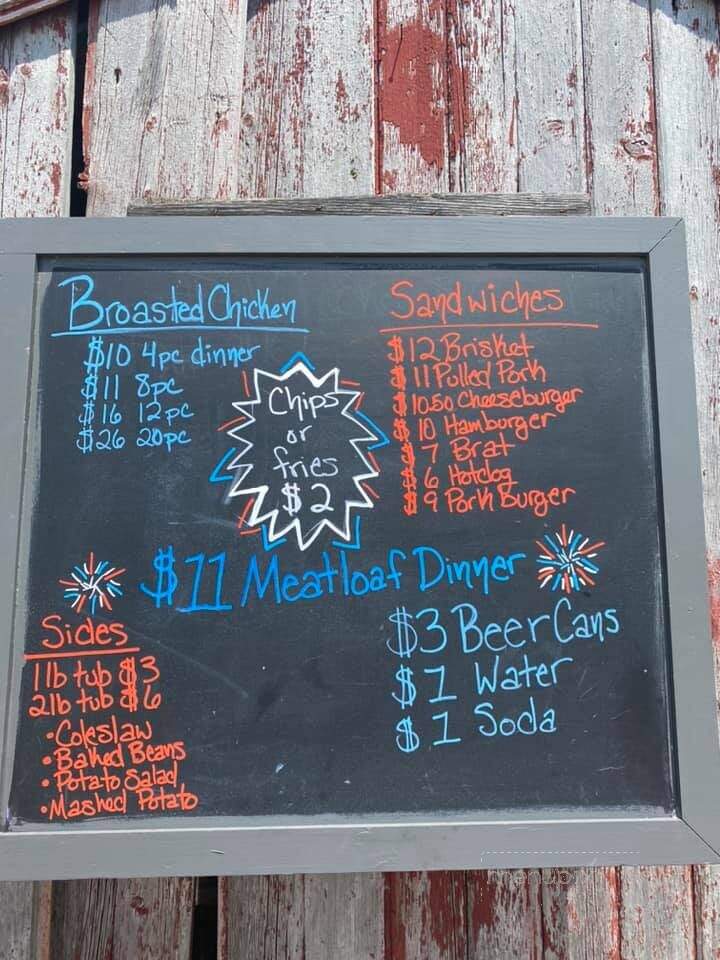 Broasted Chicken
$10 4pc dinner
$11 8pc
$16 12pc
$26 20pc
Chips
or
fries
$2
Sandwiches
$12 Brisket
$11 Pulled Pork
$10.50 Cheeseburger
$10 Hamburger
$7 Brat
$6 Hotdog
$9 Pork Burger
$11 Meatloaf Dinner
Sides
1lb tub $3
2lb tub $6
• Coleslaw
• Baked Beans
• Potato Salad
• Mashed Potato
$3 Beer Cans
$1 Water
$1 Soda